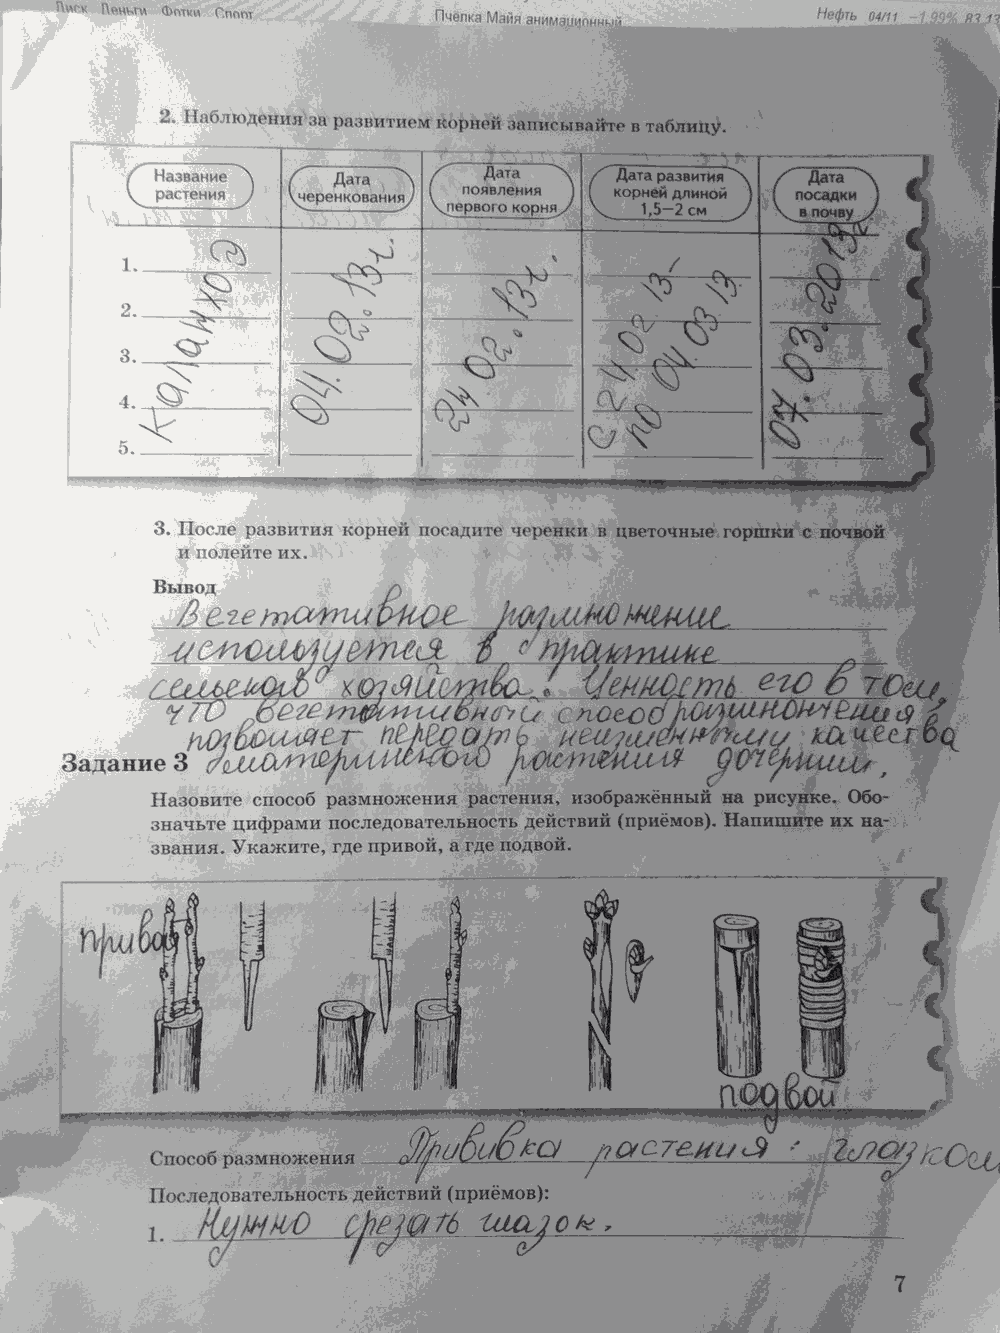 Диск Деньги Фотки Спорт
Пчёлка Майя анимационный
Нефть 04/11 −1.99% 83.13
2. Наблюдения за развитием корней записывайте в таблицу.
Название растения
Дата черенкования
Дата появления первого корня
Дата развития корней длиной 1,5—2 см
Дата посадки в почву
1.
2.
3.
4.
5.
Каланхоэ
04.02.13г.
24 02.13г.
С 24.02 13-
по 04 03 13
07.03.2013г
3. После развития корней посадите черенки в цветочные горшки с почвой
и полейте их.
Вывод
Вегетативное размножение
используется в практике
сельского хозяйства. Ценность его в том,
что вегетативный способ размножения
позволяет передать неизменными качества
Задание 3 материнского растения дочерним.
Назовите способ размножения растения, изображённый на рисунке. Обо-
значьте цифрами последовательность действий (приёмов). Напишите их на-
звания. Укажите, где привой, а где подвой.
привой
подвой
Способ размножения Прививка растения: глазком
Последовательность действий (приёмов):
1. Нужно срезать глазок.
7